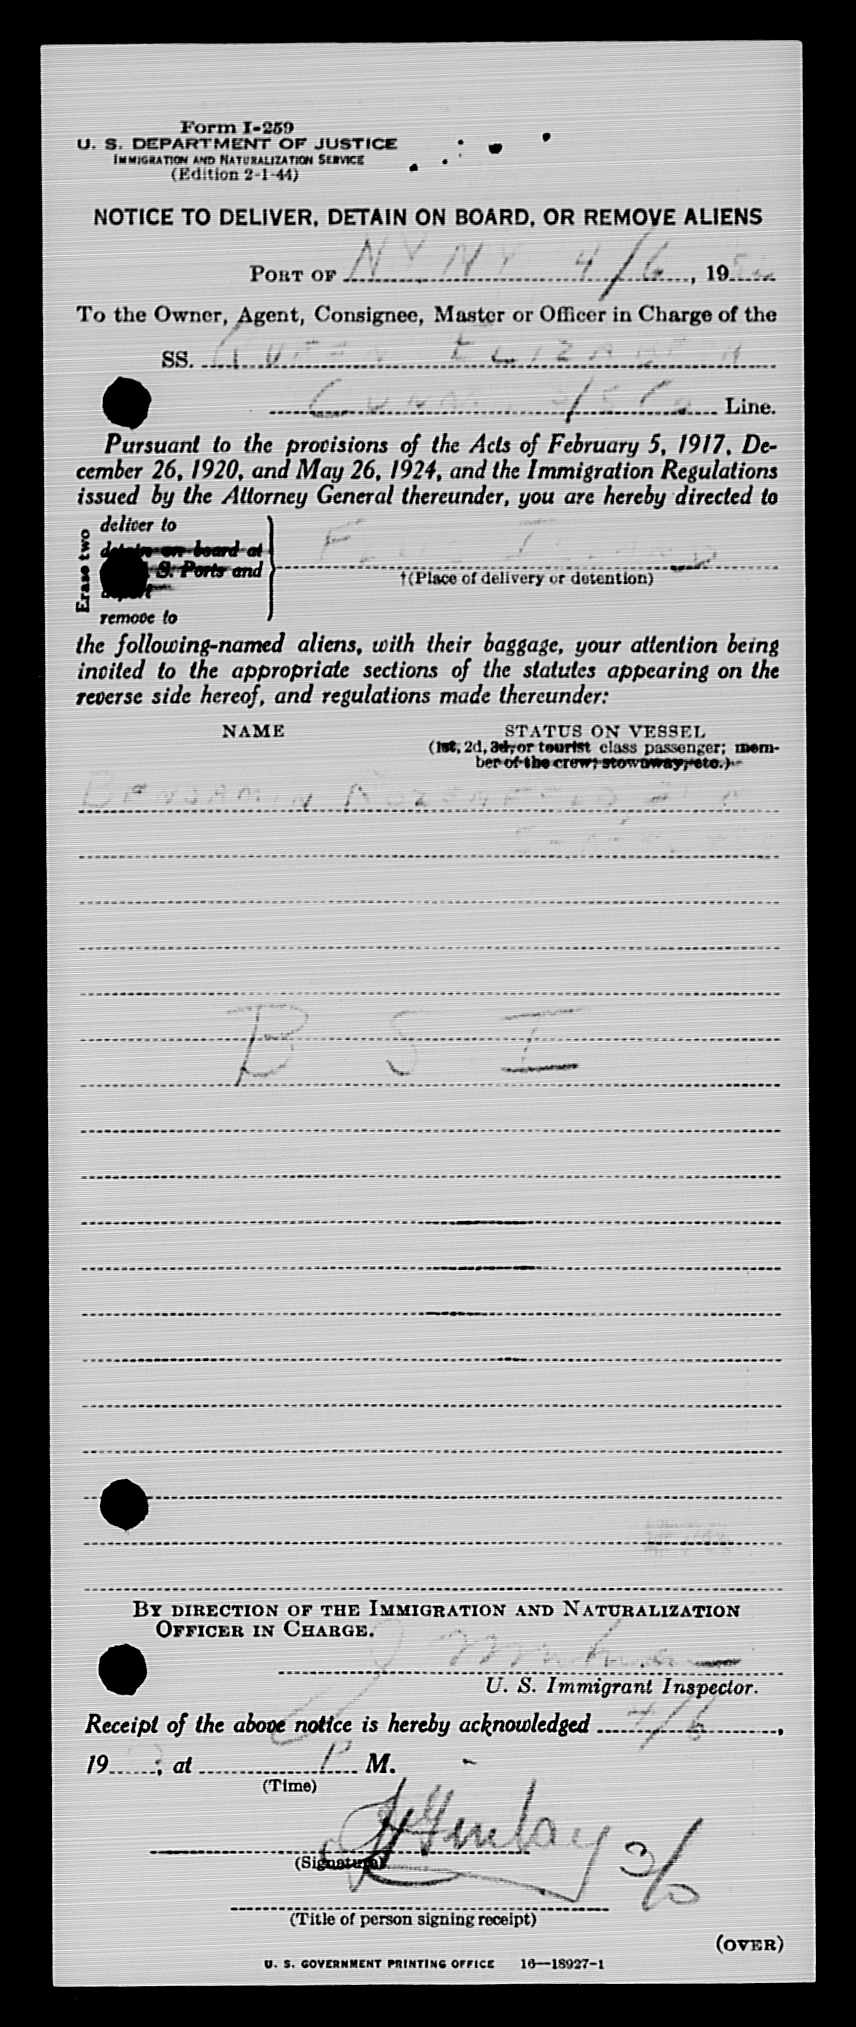 Form I-259
U. S. DEPARTMENT OF JUSTICE
IMMIGRATION AND NATURALIZATION SERVICE
(Edition 2-1-44)
NOTICE TO DELIVER, DETAIN ON BOARD, OR REMOVE ALIENS
PORT OF NY NY 4/6, 19
To the Owner, Agent, Consignee, Master or Officer in Charge of the
SS. QUEEN ELIZABETH
CUNARD Line.
Pursuant to the provisions of the Acts of February 5, 1917, De-
cember 26, 1920, and May 26, 1924, and the Immigration Regulations
issued by the Attorney General thereunder, you are hereby directed to
Erase two
deliver to
detain on board at
S. Ports and
deport
remove to
ELLIS ISLAND
†(Place of delivery or detention)
the following-named aliens, with their baggage, your attention being
invited to the appropriate sections of the statutes appearing on the
reverse side hereof, and regulations made thereunder:
NAME STATUS ON VESSEL
(1st, 2d, 3d, or tourist class passenger; mem-
ber of the crew; stowaway, etc.)
BENJAMIN ROZENFELD
B S I
BY DIRECTION OF THE IMMIGRATION AND NATURALIZATION
OFFICER IN CHARGE.
U. S. Immigrant Inspector.
Receipt of the above notice is hereby acknowledged 4/6,
19, at P M.
(Time)
Finlay
(Signature)
(Title of person signing receipt)
(OVER)
U. S. GOVERNMENT PRINTING OFFICE 16—18927-1